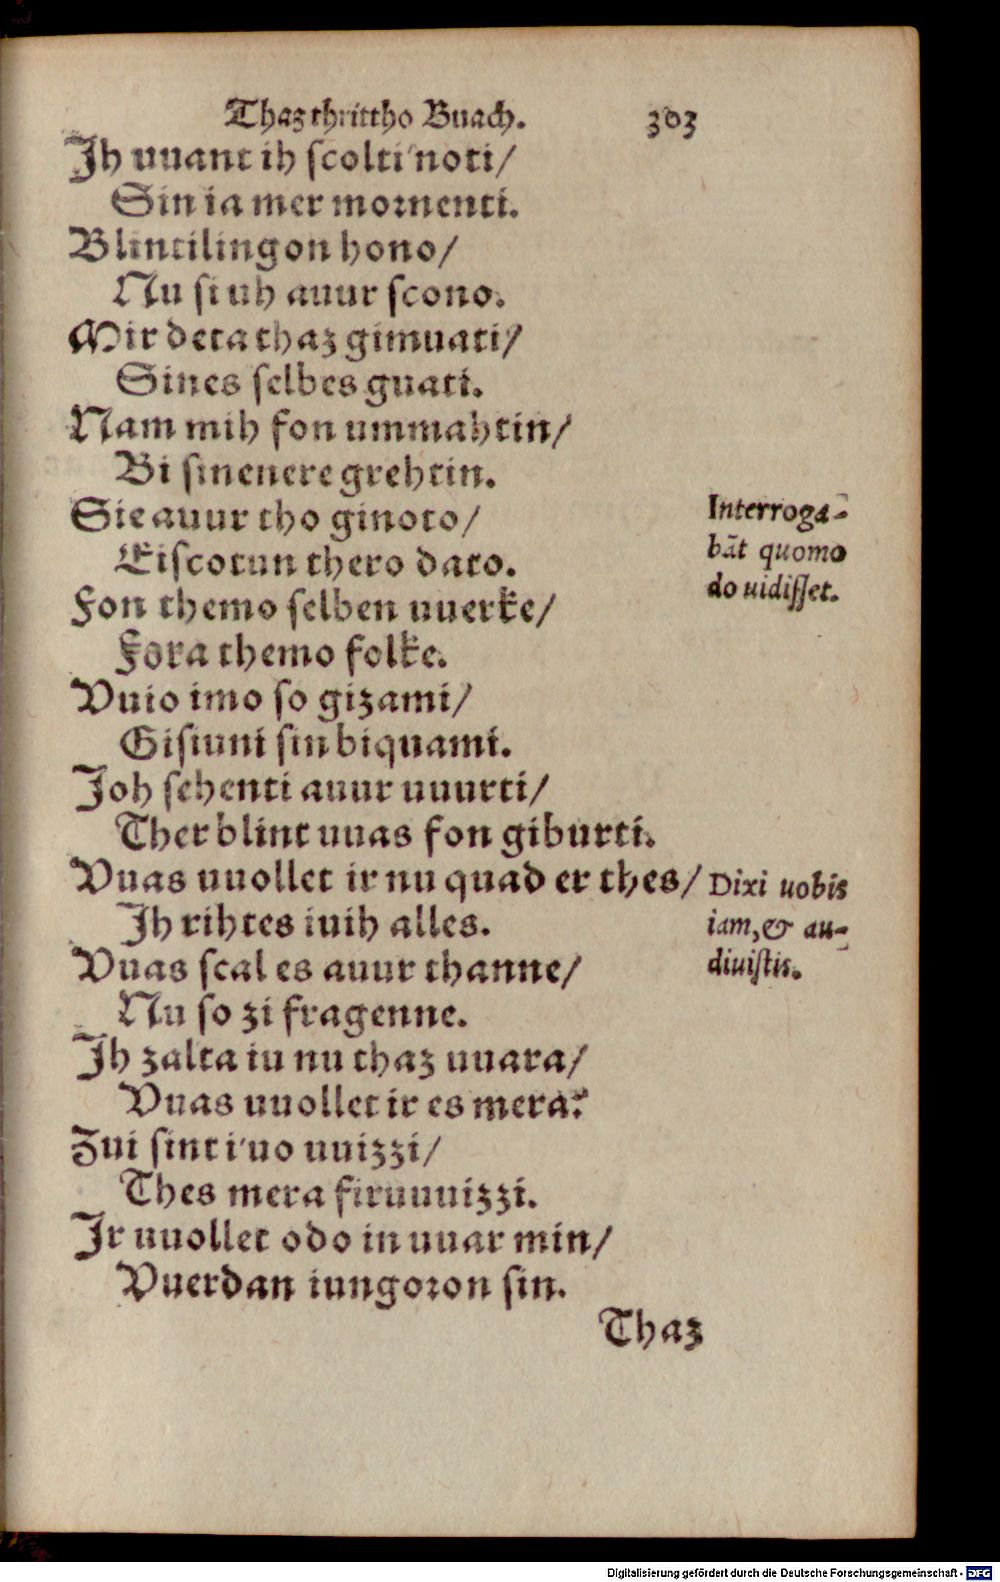 Thaz thrittho Buach. 303
Jh uuant ih scolti noti/
Sin ia mer mornenti.
Blintilingon hono/
Nu si uh auur scono.
Mir deta thaz gimuati/
Sines selbes guati.
Nam mih fon ummahtin/
Bi sinenere grehtin.
Sie auur tho ginoto/
Eiscotun thero dato.
Fon themo selben uuerke/
Fora themo folke.
Vuio imo so gizami/
Gisiuni sin biquami.
Joh sehenti auur uuurti/
Ther blint uuas fon giburti.
Vuas uuollet ir nu quad er thes/
Jh rihtes iuih alles.
Vuas scal es auur thanne/
Nu so zi fragenne.
Jh zalta iu nu thaz uuara/
Vuas uuollet ir es mera?
Zui sint i'uo uuizzi/
Thes mera firuuuizzi.
Jr uuollet odo in uuar min/
Vuerdan iungoron sin.
Thaz
Interroga-
bāt quomo
do uidisset.
Dixi uobis
iam, & au-
diuistis.
Digitalisierung gefördert durch die Deutsche Forschungsgemeinschaft - DFG